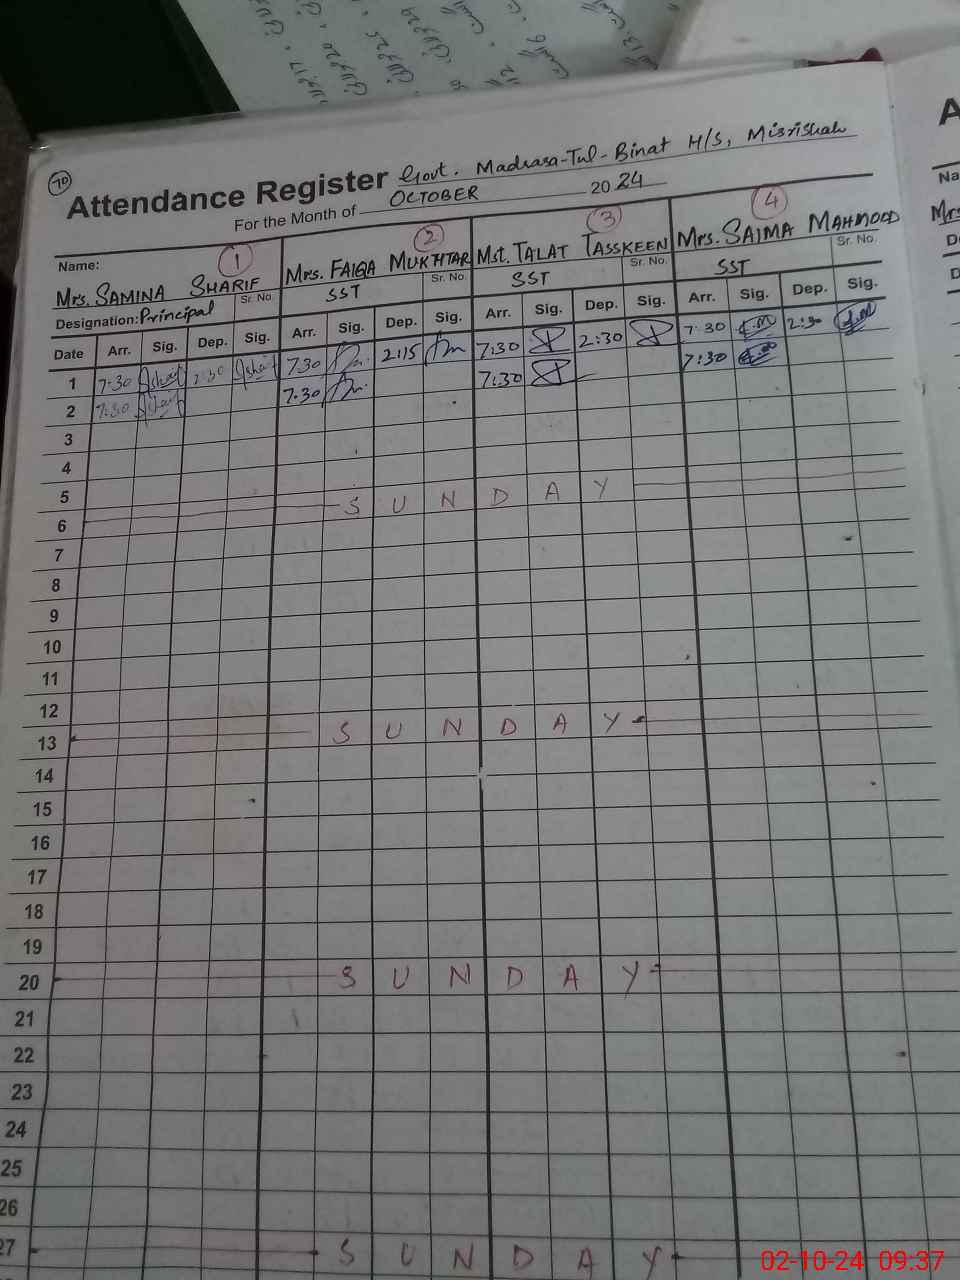 70
Attendance Register Govt. Madrasa-Tul-Binat H/S, Misrishah
For the Month of OCTOBER 2024
1 2 3 4
Name: Mrs. SAMINA SHARIF Mrs. FAIQA MUKHTAR Mst. TALAT TASSKEEN Mrs. SAIMA MAHMOOD
Designation: Principal Sr. No. SST Sr. No. SST Sr. No. SST Sr. No.
Date Arr. Sig. Dep. Sig. Arr. Sig. Dep. Sig. Arr. Sig. Dep. Sig. Arr. Sig. Dep. Sig.
1 7:30 2:30 7:30 2:15 7:30 2:30 7:30 2:30
2 7:30 7:30 7:30 7:30
3
4
5
6 SUNDAY
7
8
9
10
11
12
13 SUNDAY
14
15
16
17
18
19
20 SUNDAY
21
22
23
24
25
26
27 SUNDAY
02-10-24 09:37